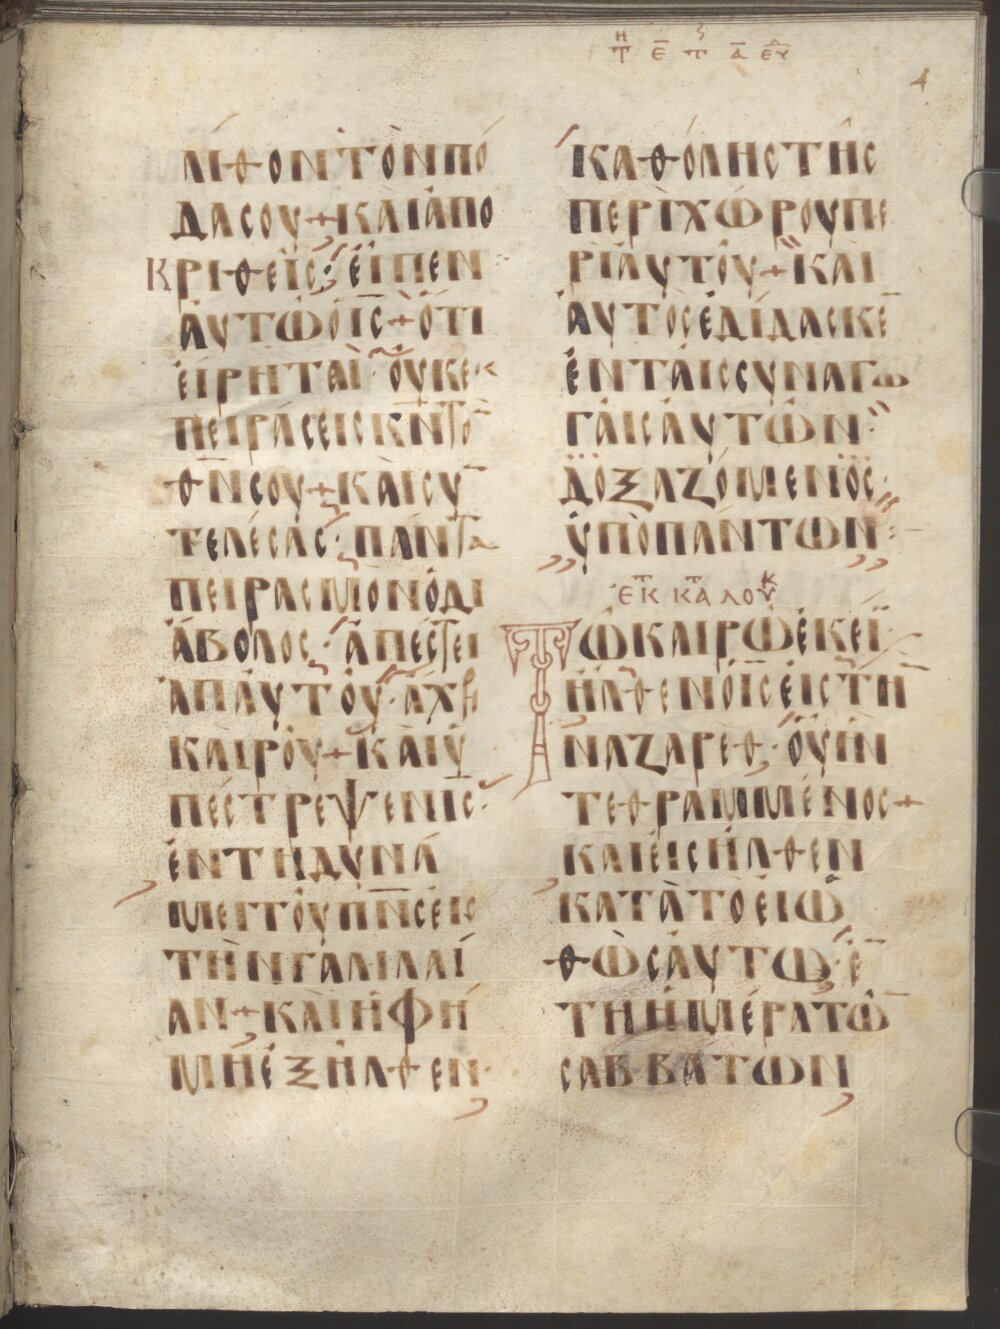 Τῌ Ε̅ Π̅ Α̅ ΕΥ̅
4
ΛΙΘΟΝ ΤΟΝ ΠΟ
ΔΑ ΣΟΥ + ΚΑΙ ΑΠΟ
ΚΡΙΘΕΙΣ · ΕΙΠΕΝ
ΑΥΤΩ Ο ΙΣ̅ + ΟΤΙ
ΕΙΡΗΤΑΙ · ΟΥΚ Ε
ΠΕΙΡΑΣΕΙΣ ΚΝ̅ ΤΟ
ΘΝ̅ ΣΟΥ + ΚΑΙ ΣΥ
ΤΕΛΕΣΑΣ · ΠΑΝΤΑ
ΠΕΙΡΑΣΜΟΝ Ο ΔΙ
ΑΒΟΛΟΣ · ΑΠΕΣΤΕΙ
ΑΠ ΑΥΤΟΥ · ΑΧΡΙ
ΚΑΙΡΟΥ + ΚΑΙ Υ
ΠΕΣΤΡΕΨΕΝ Ο ΙΣ̅ ·
ΕΝ ΤΗ ΔΥΝΑ
ΜΕΙ ΤΟΥ ΠΝ̅Σ ΕΙΣ
ΤΗΝ ΓΑΛΙΛΑΙ
ΑΝ + ΚΑΙ Η ΦΗ
ΜΗ ΕΞΗΛΘΕΝ ·
ΚΑΘ ΟΛΗΣ ΤΗΣ
ΠΕΡΙΧΩΡΟΥ ΠΕ
ΡΙ ΑΥΤΟΥ + ΚΑΙ
ΑΥΤΟΣ ΕΔΙΔΑΣΚΕ̅
ΕΝ ΤΑΙΣ ΣΥΝΑΓΩ
ΓΑΙΣ ΑΥΤΩΝ ·
ΔΟΞΑΖΟΜΕΝΟΣ ·
ΥΠΟ ΠΑΝΤΩΝ ·
ΕΚ Τ ΚΑΤ ΛΟΥΚ
ΤΩ ΚΑΙΡΩ ΕΚΕΙ
ΗΛΘΕΝ Ο ΙΣ̅ ΕΙΣ ΤΗ̅
ΝΑΖΑΡΕΘ · ΟΥ ΗΝ
ΤΕΘΡΑΜΜΕΝΟΣ +
ΚΑΙ ΕΙΣΗΛΘΕΝ
ΚΑΤΑ ΤΟ ΕΙΩ
ΘΩΣ ΑΥΤΩ · Ε̅
ΤΗ ΗΜΕΡΑ ΤΩ̅
ΣΑΒΒΑΤΩΝ